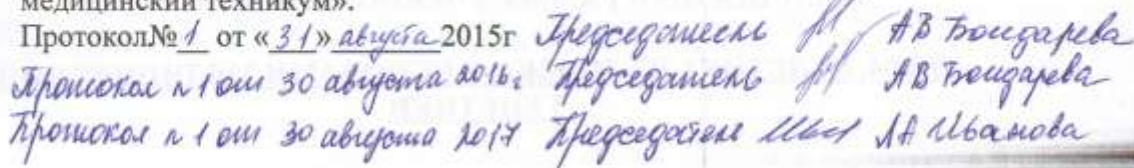 медицинский техникум».
Протокол№ 1 от «31» августа 2015г Председатель АВ Бондарева
Протокол №1 от 30 августа 2016г Председатель АВ Бондарева
Протокол №1 от 30 августа 2017 Председатель ЛА Иванова